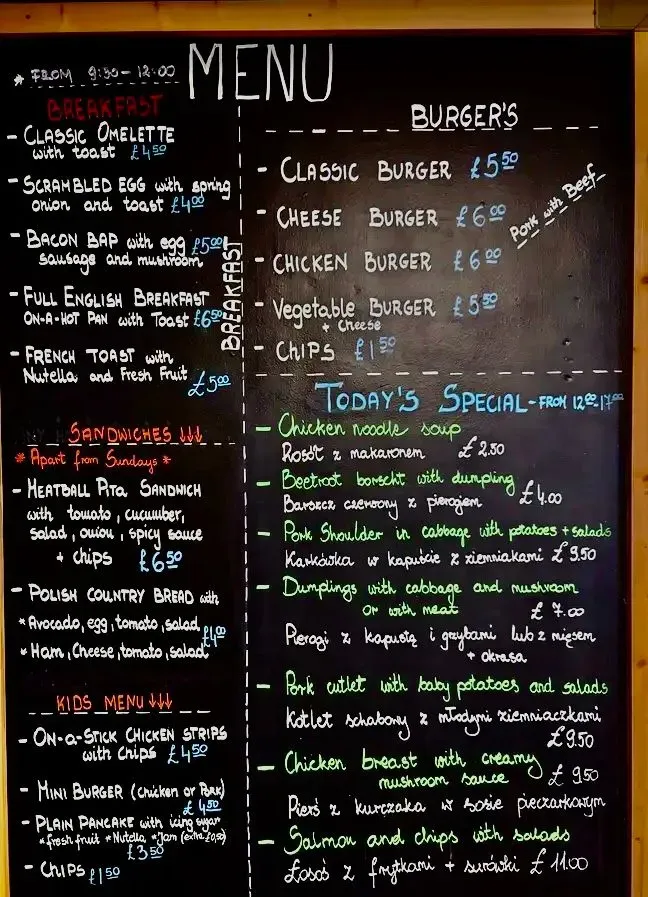 MENU
* FROM 9:30-12:00
BREAKFAST
- CLASSIC OMELETTE
with toast £4.50
- SCRAMBLED EGG with spring
onion and toast £4.00
- BACON BAP with egg £5.00
sausage and mushroom
- FULL ENGLISH BREAKFAST
ON-A-HOT PAN with Toast £6.50
- FRENCH TOAST with
Nutella and Fresh Fruit £5.00
BREAKFAST
SANDWICHES ↓↓↓
* Apart from Sundays *
- MEATBALL Pita SANDWICH
with tomato, cucumber,
salad, onion, spicy sauce
+ chips £6.50
- POLISH COUNTRY BREAD with
* Avocado, egg, tomato, salad
* Ham, Cheese, tomato, salad £4.00
KIDS MENU ↓↓↓
- ON-a-STICK CHICKEN STRIPS
with chips £4.50
- MINI BURGER (chicken or Pork)
£4.50
- PLAIN PANCAKE with icing sugar
*fresh fruit *Nutella *Jam (extra £0,50)
£3.50
- CHIPS £1.50
BURGER'S
- CLASSIC BURGER £5.50
- CHEESE BURGER £6.00
Pork with Beef
- CHICKEN BURGER £6.00
- Vegetable BURGER £5.50
+ Cheese
- CHIPS £1.50
TODAY'S SPECIAL - FROM 12:00-17:00
- Chicken noodle soup
Rosół z makaronem £2.50
- Beetroot borscht with dumpling
Barszcz czerwony z pierogiem £4.00
- Pork Shoulder in cabbage with potatoes + salads
Karkówka w kapuście z ziemniakami £9.50
- Dumplings with cabbage and mushroom
or with meat £7.00
Pierogi z kapustą i grzybami lub z mięsem
+ okrasa
- Pork cutlet with baby potatoes and salads
Kotlet schabowy z młodymi ziemniaczkami
£9.50
- Chicken breast with creamy
mushroom sauce £9.50
Pierś z kurczaka w sosie pieczarkowym
- Salmon and chips with salads
Łosoś z frytkami + surówki £11.00